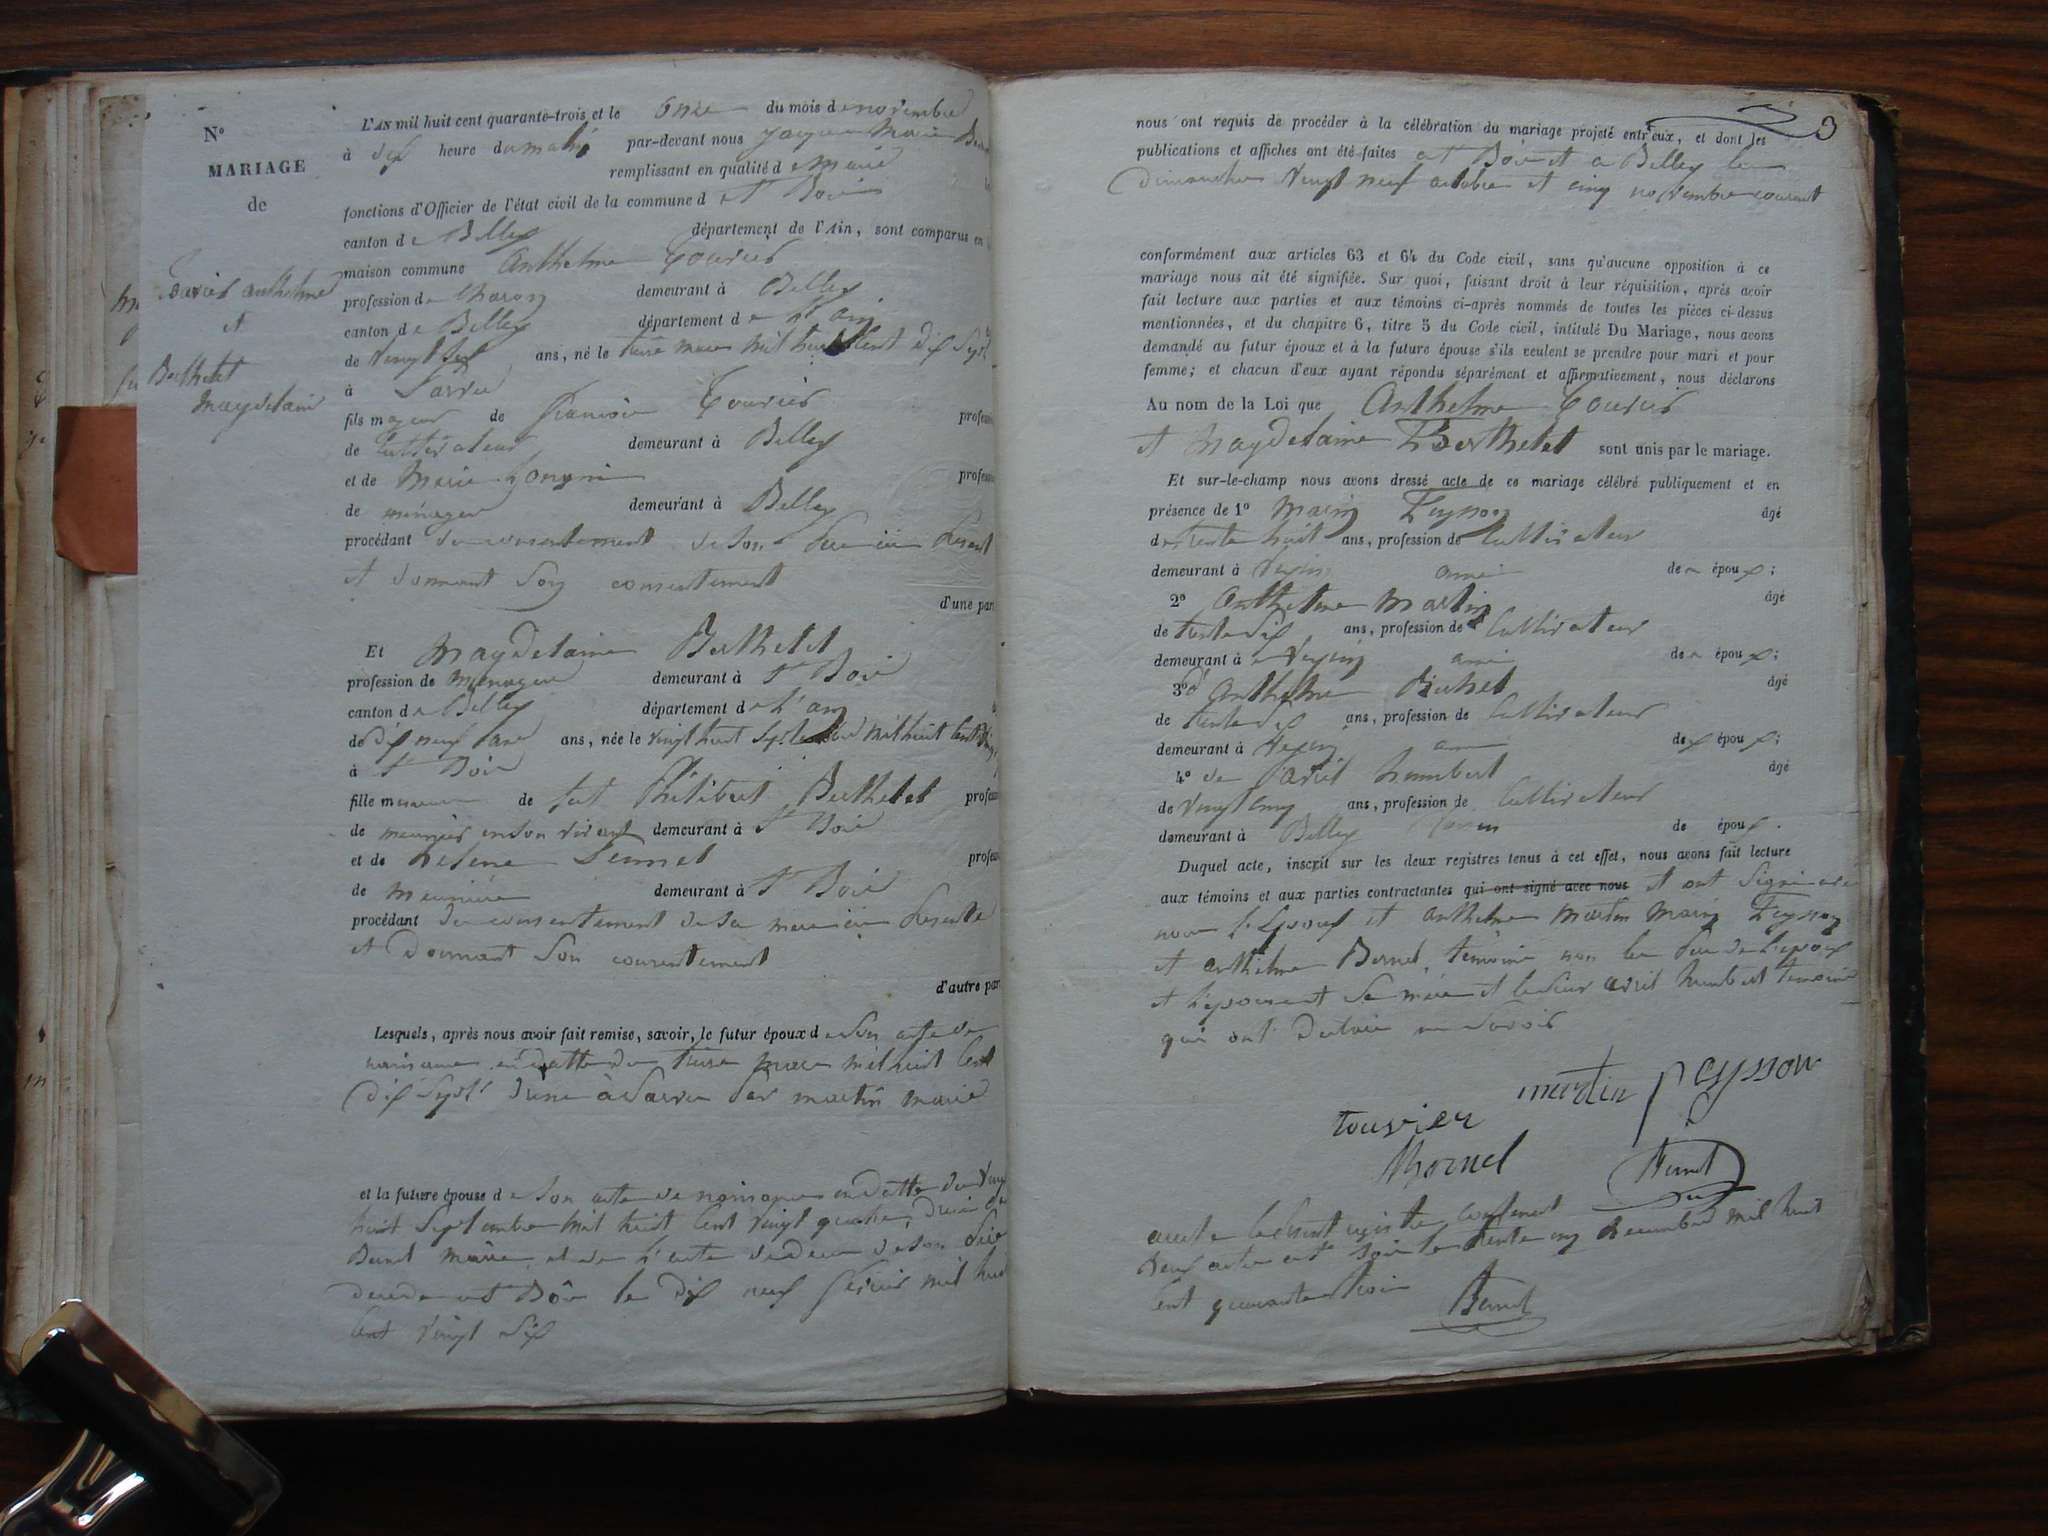 N°
MARIAGE
de
anthelme
et
Berthelet
magdelaine
L'AN mil huit cent quarante-trois et le onze du mois de novembre
à dix heure du matin par-devant nous Jacques Marie
remplissant en qualité de maire
fonctions d'Officier de l'état civil de la commune d St Bois
canton de Belley département de l'Ain, sont comparus en
maison commune Anthelme
profession de charon demeurant à Belley
canton de Belley département de l'ain
de vingt six ans, né le treize mars mil huit cent dix sept
à
fils majeur de François
de cultivateur demeurant à Belley
et de Marie
de ménagere demeurant à Belley
procédant du consentement de son pere ici présent
et donnant son consentement
d'une part
Et Magdelaine Berthelet
profession de ménagere demeurant à St Bois
canton de Belley département de l'ain
de dix neuf ans ans, née le vingt huit septembre mil huit cent vingt
à St Bois
fille mineure de feu Philibert Berthelet
de meunier en son vivant demeurant à St Bois
et de helene
de meunière demeurant à St Bois
procédant du consentement de sa mere ici présente
et donnant son consentement
d'autre part
Lesquels, après nous avoir fait remise, savoir, le futur époux de son acte de
naissance en datte du treize mars mil huit cent
dix sept par martin maire
et la future épouse de son acte de naissance en datte du vingt
huit septembre mil huit cent vingt quatre,
maire et de l'acte de deces de son père
décédé a St Bois le dix neuf février mil huit
cent vingt six
3
nous ont requis de procéder à la célébration du mariage projeté entr'eux, et dont les
publications et affiches ont été faites a St Bois et a Belley les
dimanches vingt neuf octobre et cinq novembre courant
conformément aux articles 63 et 64 du Code civil, sans qu'aucune opposition à ce
mariage nous ait été signifiée. Sur quoi, faisant droit à leur réquisition, après avoir
fait lecture aux parties et aux témoins ci-après nommés de toutes les pièces ci-dessus
mentionnées, et du chapitre 6, titre 5 du Code civil, intitulé Du Mariage, nous avons
demandé au futur époux et à la future épouse s'ils veulent se prendre pour mari et pour
femme; et chacun d'eux ayant répondu séparément et affirmativement, nous déclarons
Au nom de la Loi que Anthelme
et Magdelaine Berthelet sont unis par le mariage.
Et sur-le-champ nous avons dressé acte de ce mariage célébré publiquement et en
présence de 1° Peysson âgé
de trente huit ans, profession de Cultivateur
demeurant à ami de époux;
2° Anthelme Martin âgé
de trente six ans, profession de Cultivateur
demeurant à ami de époux;
3° Anthelme âgé
de trente six ans, profession de Cultivateur
demeurant à ami de époux;
4° humbert âgé
de vingt cinq ans, profession de Cultivateur
demeurant à Belley de époux.
Duquel acte, inscrit sur les deux registres tenus à cet effet, nous avons fait lecture
aux témoins et aux parties contractantes qui ont signé avec nous et ont signé avec
nous l'époux et anthelme martin Peysson
et anthelme témoins non le père de l'époux
et l'épouse et sa mère et le sieur humbert témoin
qui ont déclaré ne savoir
martin peysson
touvier
arrêté le présent registre contenant
deux actes le trente un décembre mil huit
cent quarante trois